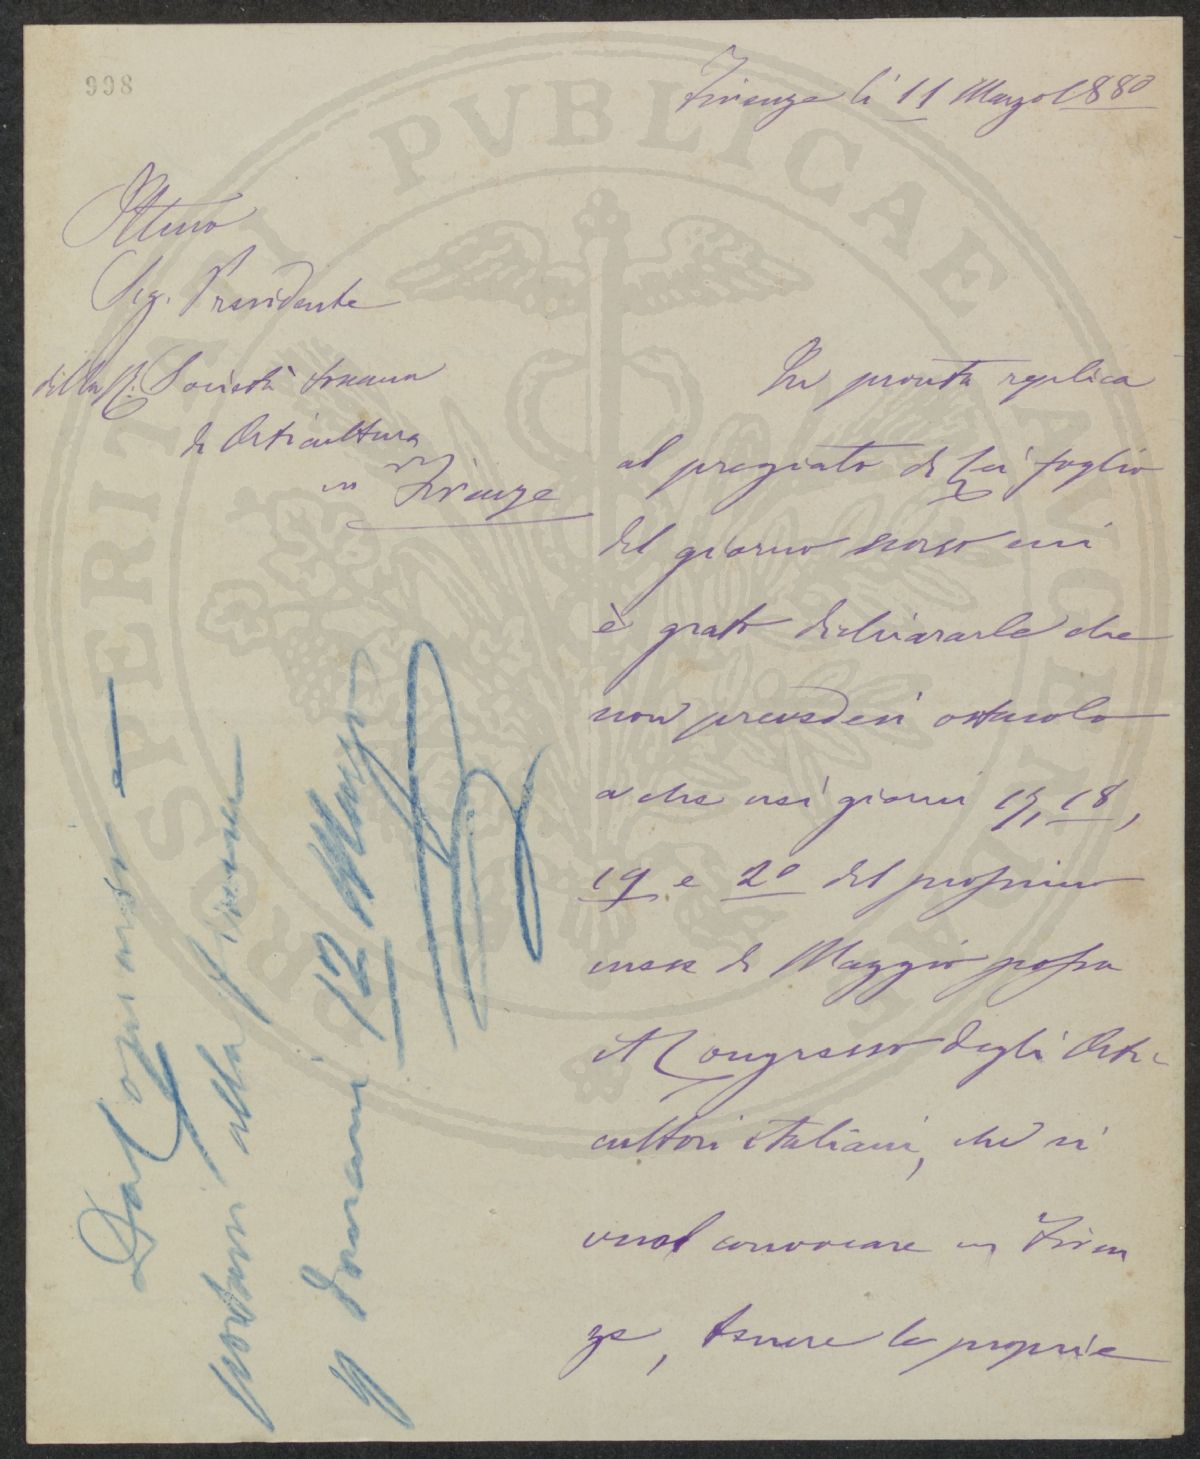 998
Firenze li 11 Marzo 1880
Illmo
Sig. Presidente
della R. Società toscana
di Orticultura
in Firenze
In pronta replica
al pregiato di Lei foglio
del giorno scorso mi
è grato dichiararle che
non prevedesi ostacolo
a che nei giorni 17, 18,
19 e 20 del prossimo
mese di Maggio possa
il Congresso degli Orti-
cultori italiani, che si
vuol convocare in Firen
ze, tenere le proprie
Dal Comunicarsi
alla
p domani 12 Marzo
PVBLICAE